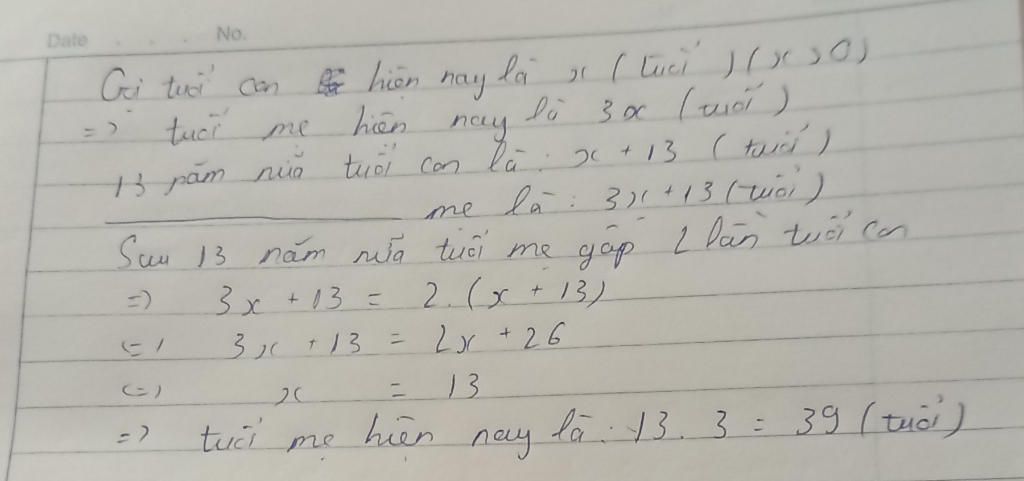 Date . . . No.
Gọi tuổi con hiện nay là x (tuổi) (x > 0)
=> tuổi mẹ hiện nay là 3x (tuổi)
13 năm nữa tuổi con là: x + 13 (tuổi)
mẹ là: 3x + 13 (tuổi)
Sau 13 năm nữa tuổi mẹ gấp 2 lần tuổi con
=> 3x + 13 = 2.(x + 13)
<=> 3x + 13 = 2x + 26
<=> x = 13
=> tuổi mẹ hiện nay là: 13. 3 = 39 (tuổi)